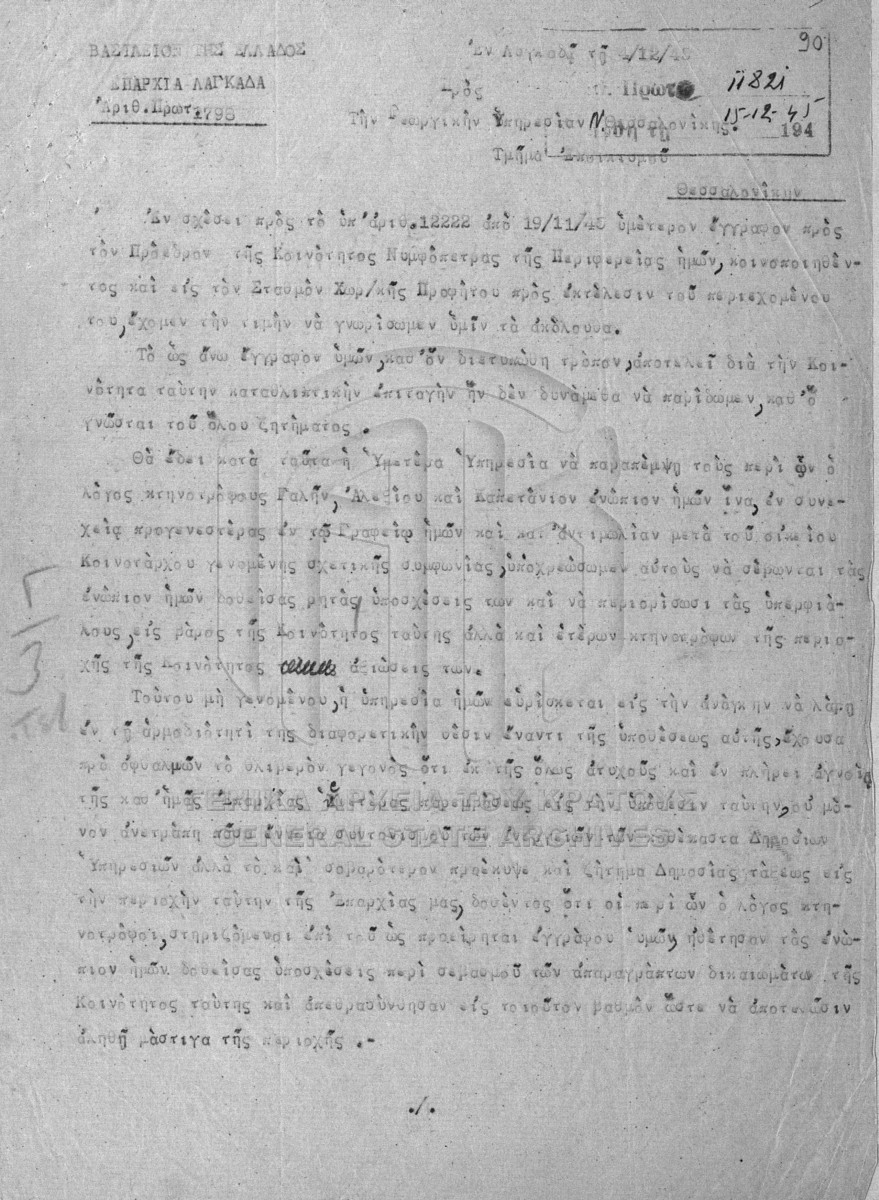 90
ΒΑΣΙΛΕΙΟΝ ΤΗΣ ΕΛΛΑΔΟΣ
ΕΠΑΡΧΙΑ ΛΑΓΚΑΔΑ
Ἀριθ.Πρωτ.1798
Ἐν Λαγκαδᾷ τῇ 4/12/45
Πρὸς
Πρωτ. 11821
15-12-45
194
Τὴν Γεωργικὴν Ὑπηρεσίαν Ν.Θεσσαλονίκης.
Τμῆμα Ἐποικισμοῦ
Θεσσαλονίκην
Ἐν σχέσει πρὸς τὸ ὑπ'ἀριθ.12222 ἀπὸ 19/11/45 ὑμέτερον ἔγγραφον πρὸς
τὸν Πρόεδρον τῆς Κοινότητος Νυμφόπετρας τῆς Περιφερείας ἡμῶν,κοινοποιηθὲν-
τος καὶ εἰς τὸν Σταθμὸν Χωρ/κῆς Προφήτου πρὸς ἐκτέλεσιν τοῦ περιεχομένου
του,ἔχομεν τὴν τιμὴν νὰ γνωρίσωμεν ὑμῖν τὰ ἀκόλουθα.
Τὸ ὡς ἄνω ἔγγραφον ὑμῶν,καθ'ὃν διετυπώθη τρόπον,ἀποτελεῖ διὰ τὴν Κοι-
νότητα ταύτην καταθλιπτικὴν ἐπιταγὴν ἣν δὲν δυνάμεθα νὰ παρίδωμεν,καθ'ὃ
γνῶσται τοῦ ὅλου ζητήματος.
Θὰ ἔδει κατὰ ταῦτα ἡ Ὑμετέρα Ὑπηρεσία νὰ παραπέμψῃ τοὺς περὶ ὧν ὁ
λόγος κτηνοτρόφους Γαλῆν, Ἀλεξίου καὶ Καπετάνιον ἐνώπιον ἡμῶν ἵνα,ἐν συνε-
χείᾳ προγενεστέρας ἐν τῷ Γραφείῳ ἡμῶν καὶ κατ'ἀντιμωλίαν μετὰ τοῦ οἰκείου
Κοινοτάρχου γενομένης σχετικῆς συμφωνίας,ὑποχρεώσωμεν αὐτοὺς νὰ σέβωνται τὰς
ἐνώπιον ἡμῶν δοθείσας ρητὰς ὑποσχέσεις των καὶ νὰ περιορίσωσι τὰς ὑπερφιά-
λους,εἰς βάρος τῆς Κοινότητος ταύτης ἀλλὰ καὶ ἑτέρων κτηνοτρόφων τῆς περιο-
χῆς τῆς Κοινότητος ἀξιώσεις των.
Τούτου μὴ γενομένου,ἡ ὑπηρεσία ἡμῶν εὑρίσκεται εἰς τὴν ἀνάγκην νὰ λάβῃ
ἐν τῇ ἁρμοδιότητί της διαφορετικὴν θέσιν ἔναντι τῆς ὑποθέσεως αὐτῆς,ἔχουσα
πρὸ ὀφθαλμῶν τὸ θλιβερὸν γεγονὸς ὅτι ἐκ τῆς ὅλως ἀτυχοῦς καὶ ἐν πλήρει ἀγνοίᾳ
τῆς καθ'ἡμᾶς Ἐπαρχίας ὑμετέρας παρεμβάσεως εἰς τὴν ὑπόθεσιν ταύτην,οὐ μό-
νον ἀνετράπη πᾶσα ἔννοια συντονισμοῦ τῶν ἐνεργειῶν τῶν καθέκαστα Δημοσίων
Ὑπηρεσιῶν ἀλλὰ τὸ καὶ σοβαρότερον προέκυψε καὶ ζήτημα Δημοσίας τάξεως εἰς
τὴν περιοχὴν ταύτην τῆς Ἐπαρχίας μας,δοθέντος ὅτι οἱ περὶ ὧν ὁ λόγος κτη-
νοτρόφοι,στηριζόμενοι ἐπὶ τοῦ ὡς προείρηται ἐγγράφου ὑμῶν,ἠθέτησαν τὰς ἐνώ-
πιον ἡμῶν δοθείσας ὑποσχέσεις περὶ σεβασμοῦ τῶν ἀπαραγράπτων δικαιωμάτων τῆς
Κοινότητος ταύτης καὶ ἀπεθρασύνθησαν εἰς τοιοῦτον βαθμὸν ὥστε νὰ ἀποτελῶσιν
ἀληθῆ μάστιγα τῆς περιοχῆς.-
./.
Γ/3
ΓΕΝΙΚΑ ΑΡΧΕΙΑ ΤΟΥ ΚΡΑΤΟΥΣ
GENERAL STATE ARCHIVES